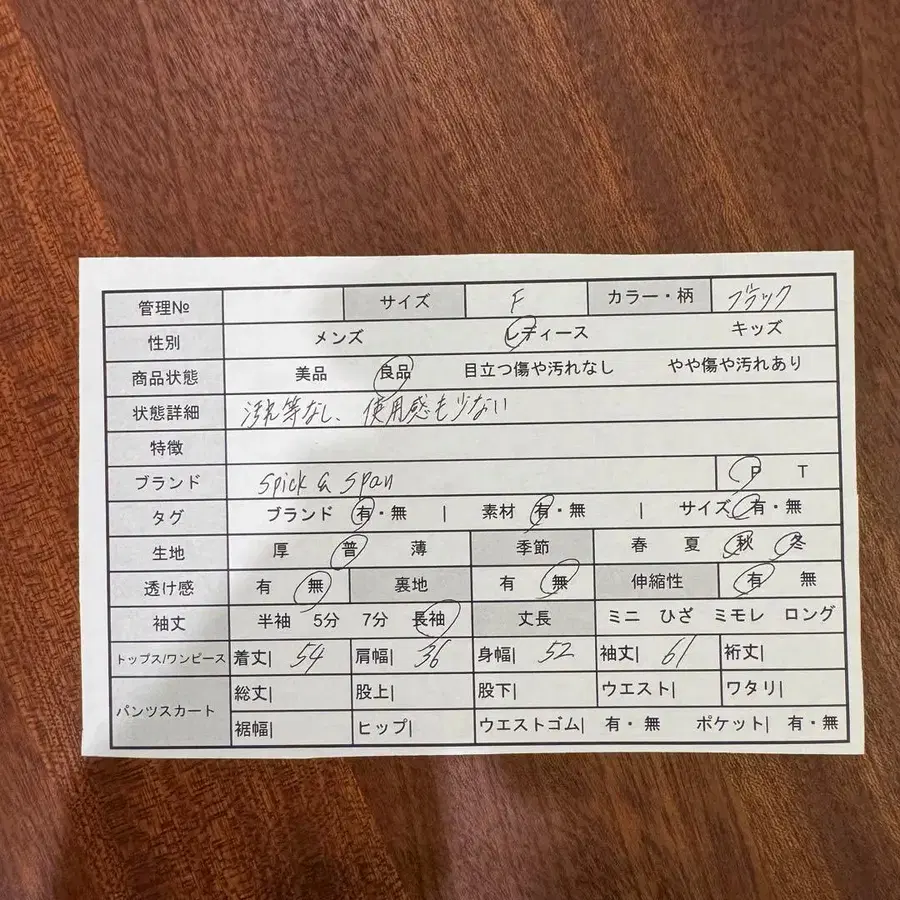 管理№ サイズ F カラー・柄 ブラック
性別 メンズ レディース キッズ
商品状態 美品 良品 目立つ傷や汚れなし やや傷や汚れあり
状態詳細 汚れ等なし、使用感も少ない
特徴
ブランド spick & span P T
タグ ブランド 有・無 | 素材 有・無 | サイズ 有・無
生地 厚 普 薄 季節 春 夏 秋 冬
透け感 有 無 裏地 有 無 伸縮性 有 無
袖丈 半袖 5分 7分 長袖 丈長 ミニ ひざ ミモレ ロング
トップス/ワンピース 着丈| 54 肩幅| 36 身幅| 52 袖丈| 61 裄丈|
パンツスカート 総丈| 股上| 股下| ウエスト| ワタリ|
裾幅| ヒップ| ウエストゴム| 有・無 ポケット| 有・無